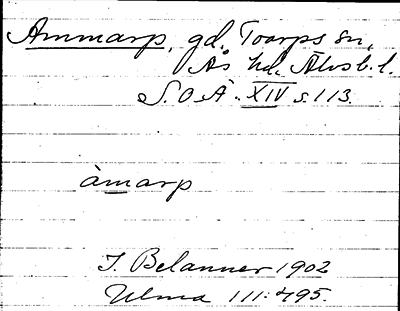 Ammarp, gd. Toarps sn,
Ås hd. Älvsb. l.
S.O.Ä. XIV s. 113.
àmarp
T. Belanner 1902
Ulma 111:495.